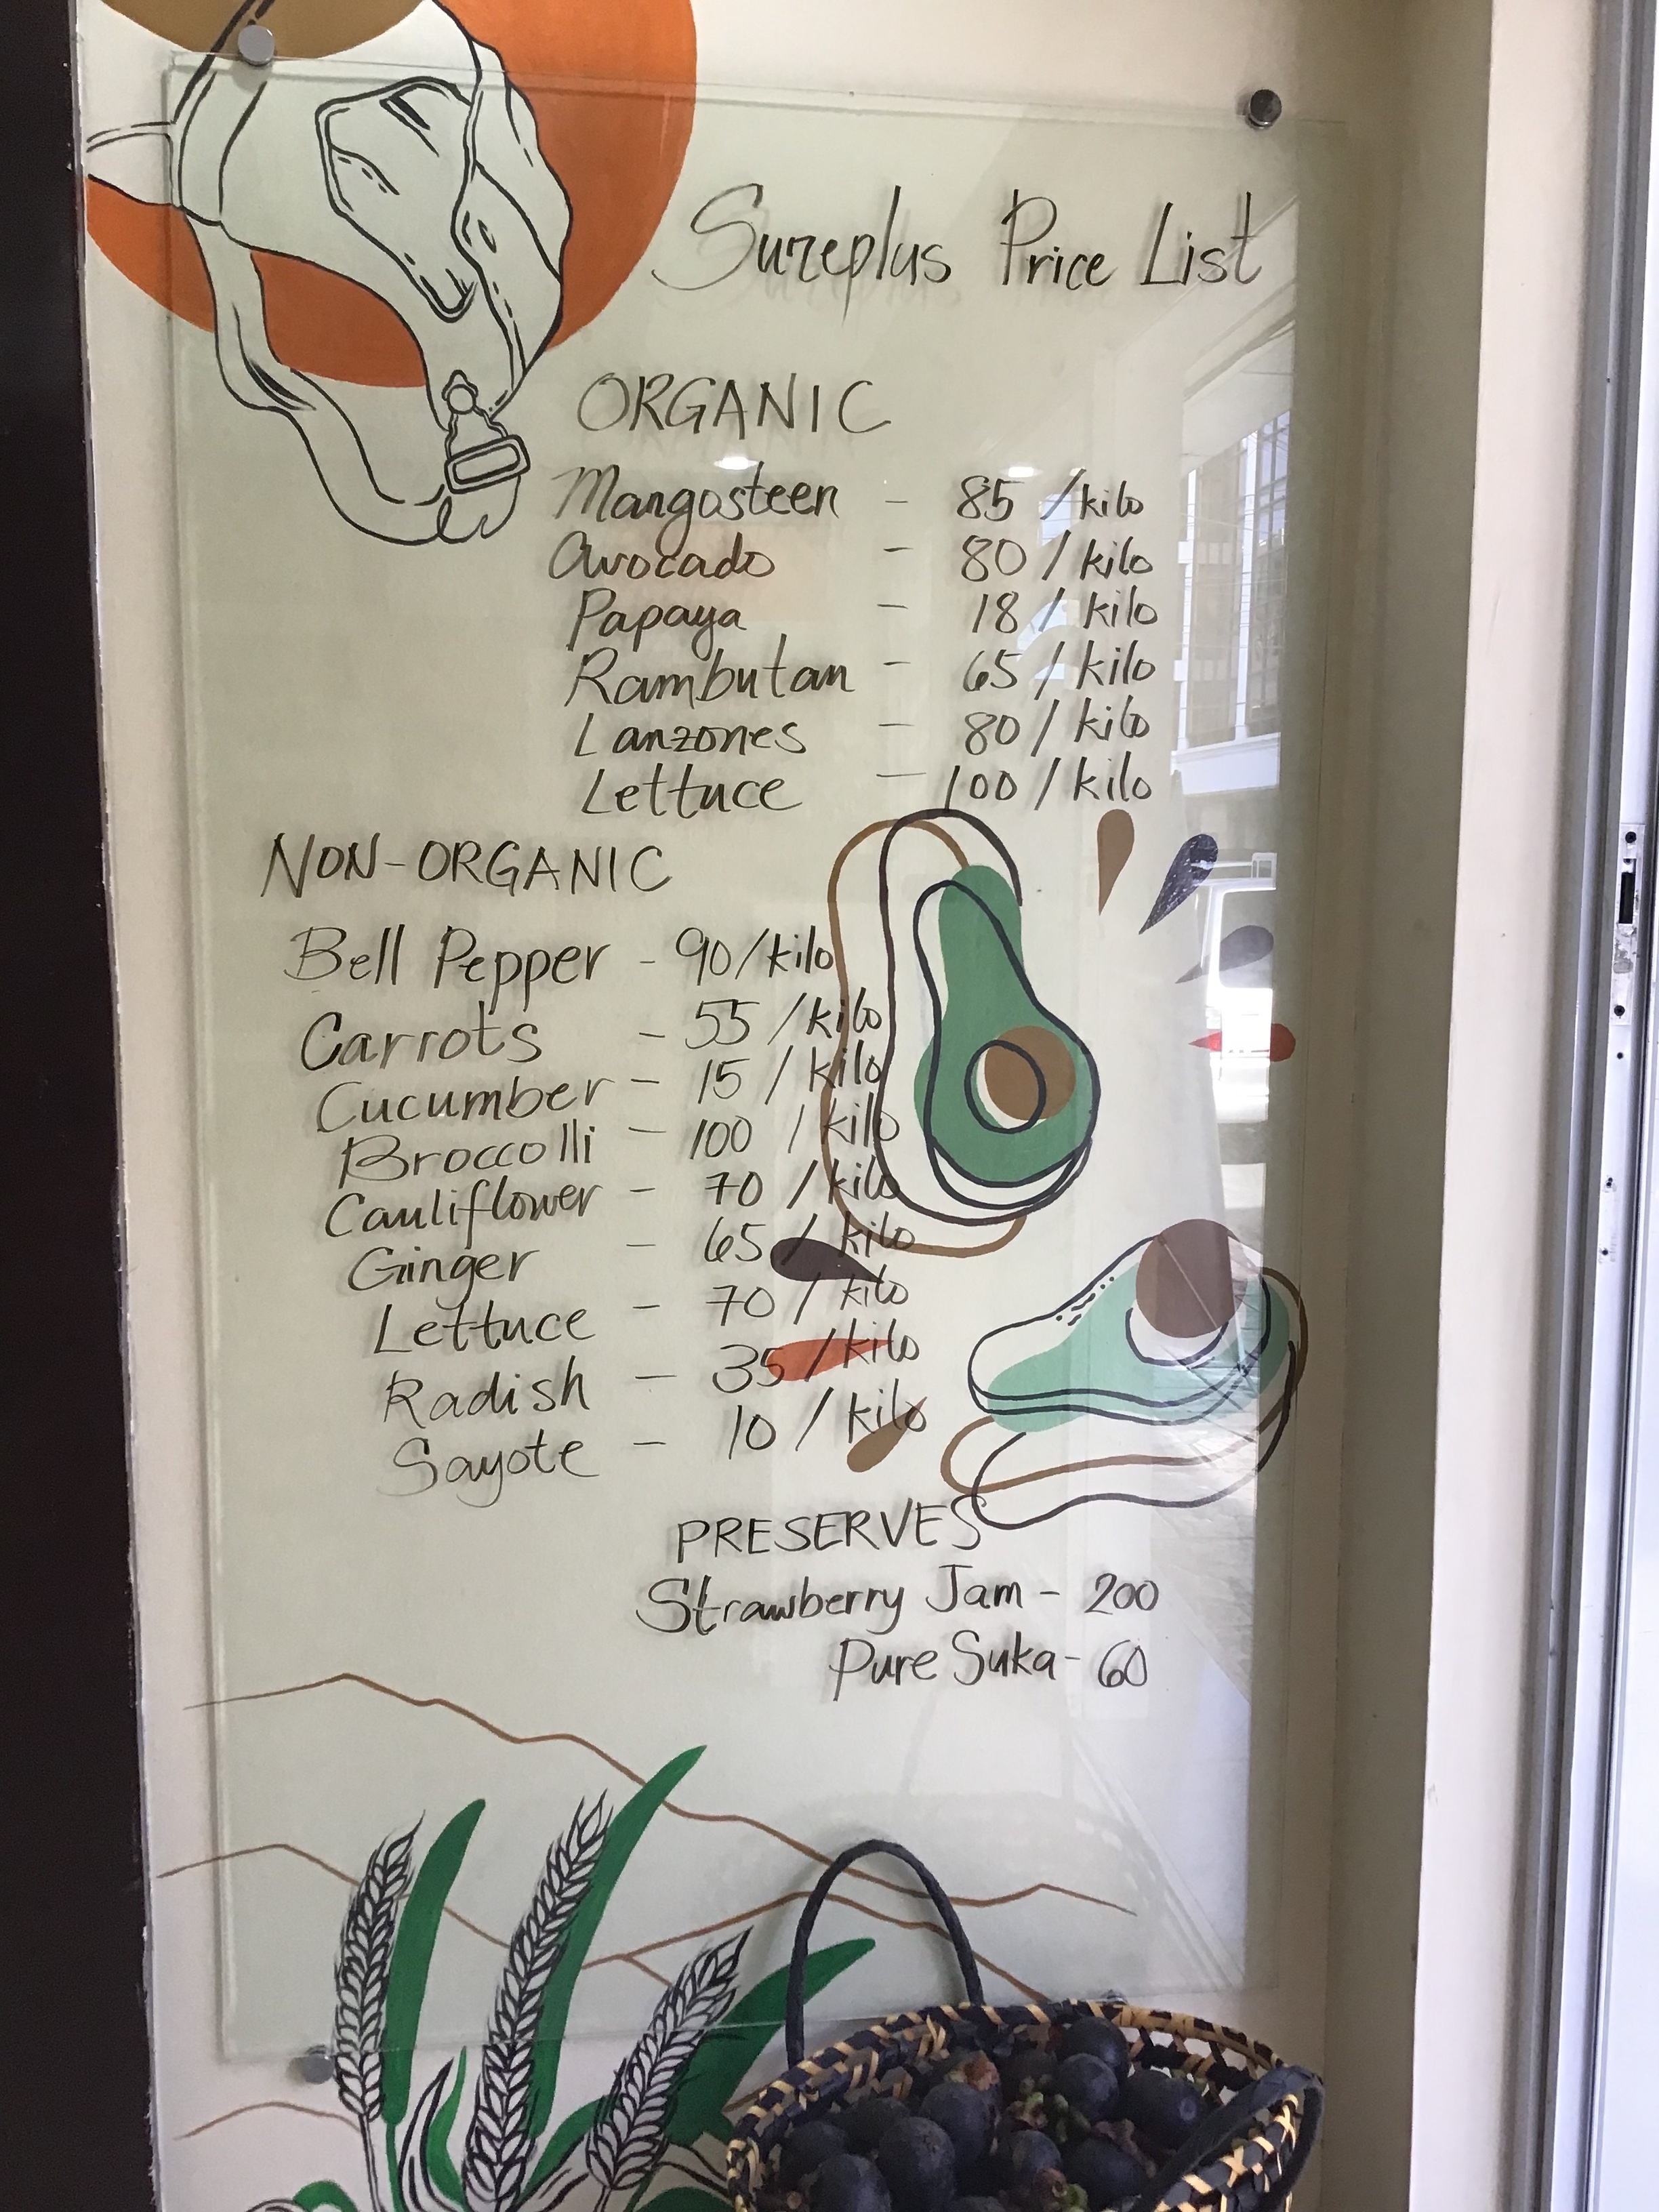 Sureplus Price List
ORGANIC
Mangosteen - 85 /kilo
Avocado - 80 / kilo
Papaya - 18 / kilo
Rambutan - 65 / kilo
Lanzones - 80 / kilo
Lettuce - 100 / kilo
NON-ORGANIC
Bell Pepper - 90/kilo
Carrots - 55 /kilo
Cucumber - 15 / kilo
Broccolli - 100 / kilo
Cauliflower - 70 / kilo
Ginger - 65 / kilo
Lettuce - 70 / kilo
Radish - 35 / kilo
Sayote - 10 / kilo
PRESERVES
Strawberry Jam - 200
Pure Suka - 60